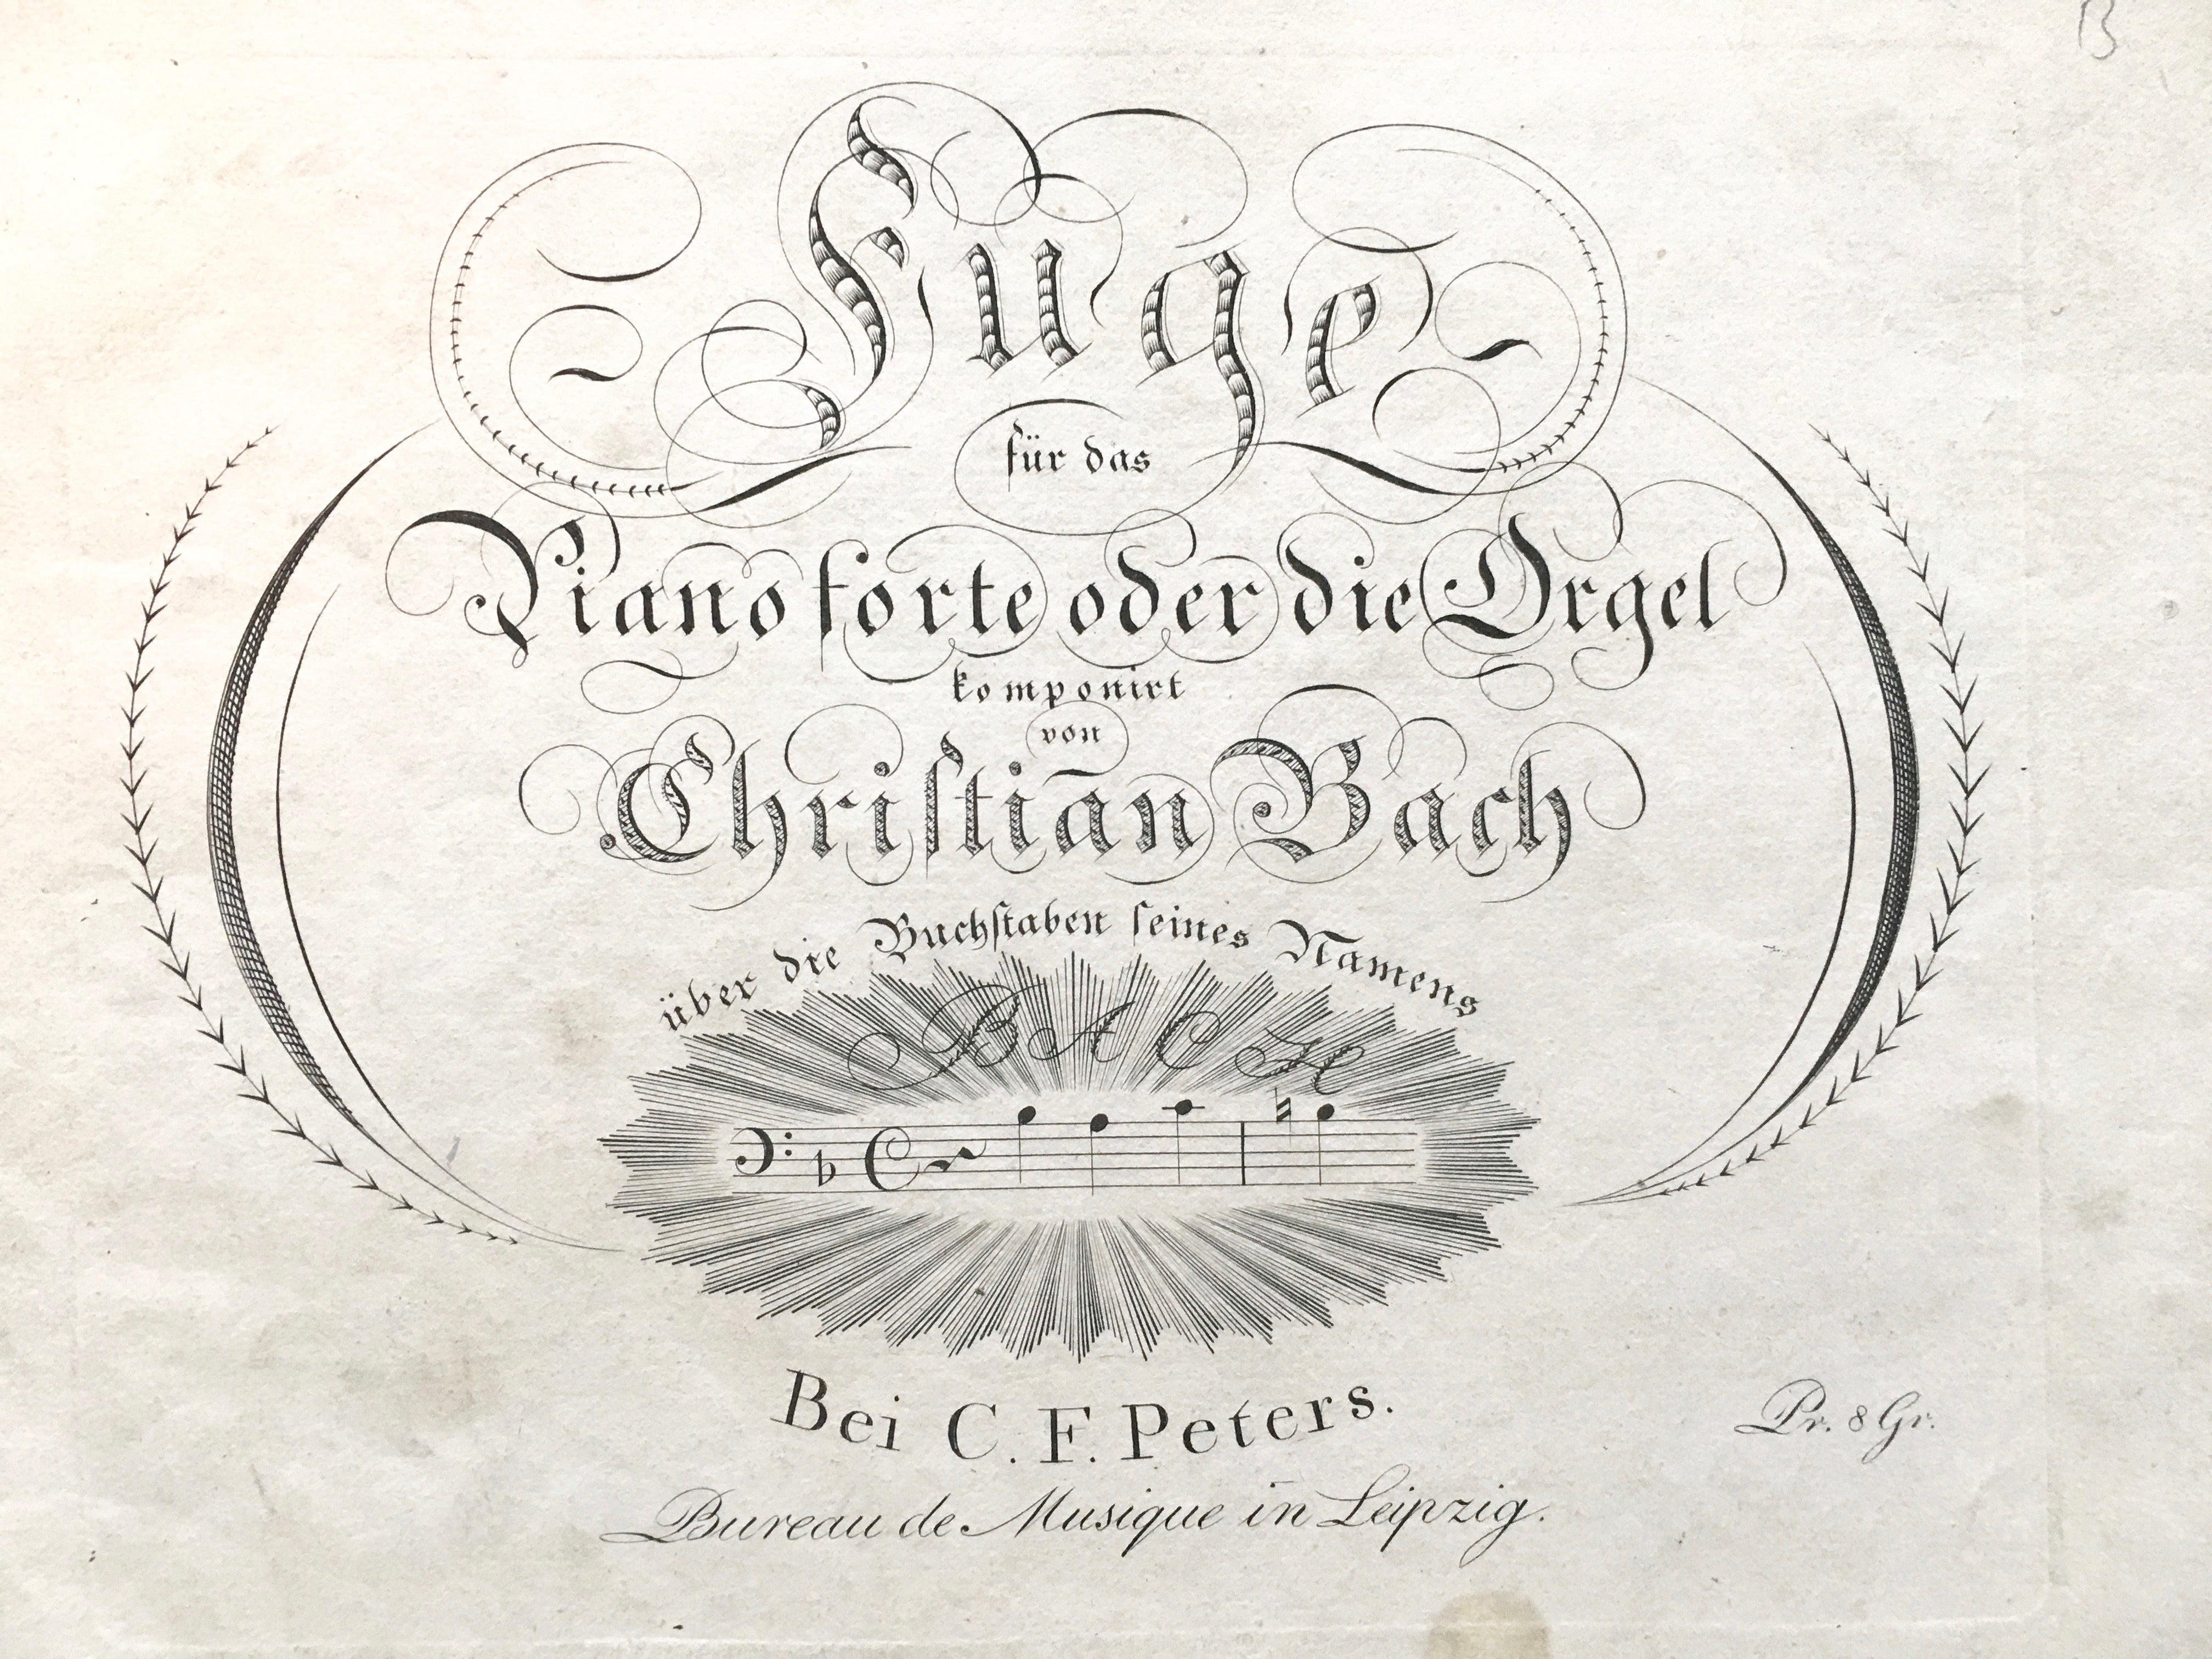 B
Fuge
für das
Piano forte oder die Orgel
komponirt
von
Chriſtian Bach
über die Buchſtaben ſeines Namens
B A C H
Bei C. F. Peters.
Pr. 8 Gr.
Bureau de Musique in Leipzig.